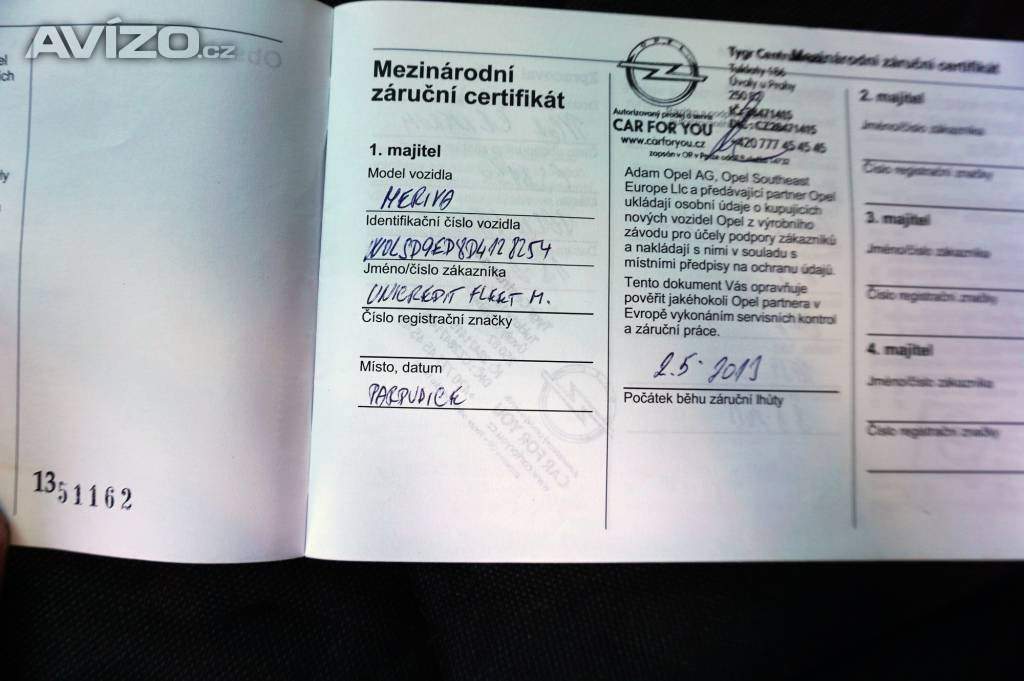 AVÍZO.cz
1351162
Mezinárodní
záruční certifikát
1. majitel
Model vozidla
MERIVA
Identifikační číslo vozidla
W0LSD9ED8D4128254
Jméno/číslo zákazníka
UNICREDIT FLEET M.
Číslo registrační značky
Místo, datum
PARDUBICE
OPEL
Autorizovaný prodej a servis
CAR FOR YOU
www.carforyou.cz
Tygr
Tuklaty 186
Úvaly u Prahy
250 82
IČ: 28471415
DIČ: CZ28471415
+420 777 45 45 45
Adam Opel AG, Opel Southeast
Europe Llc a předávající partner Opel
ukládají osobní údaje o kupujících
nových vozidel Opel z výrobního
závodu pro účely podpory zákazníků
a nakládají s nimi v souladu s
místními předpisy na ochranu údajů.
Tento dokument Vás opravňuje
pověřit jakéhokoli Opel partnera v
Evropě vykonáním servisních kontrol
a záruční práce.
2.5. 2013
Počátek běhu záruční lhůty
Mezinárodní záruční certifikát
2. majitel
Jméno/číslo zákazníka
Číslo registrační značky
3. majitel
Jméno/číslo zákazníka
Číslo registrační značky
4. majitel
Jméno/číslo zákazníka
Číslo registrační značky